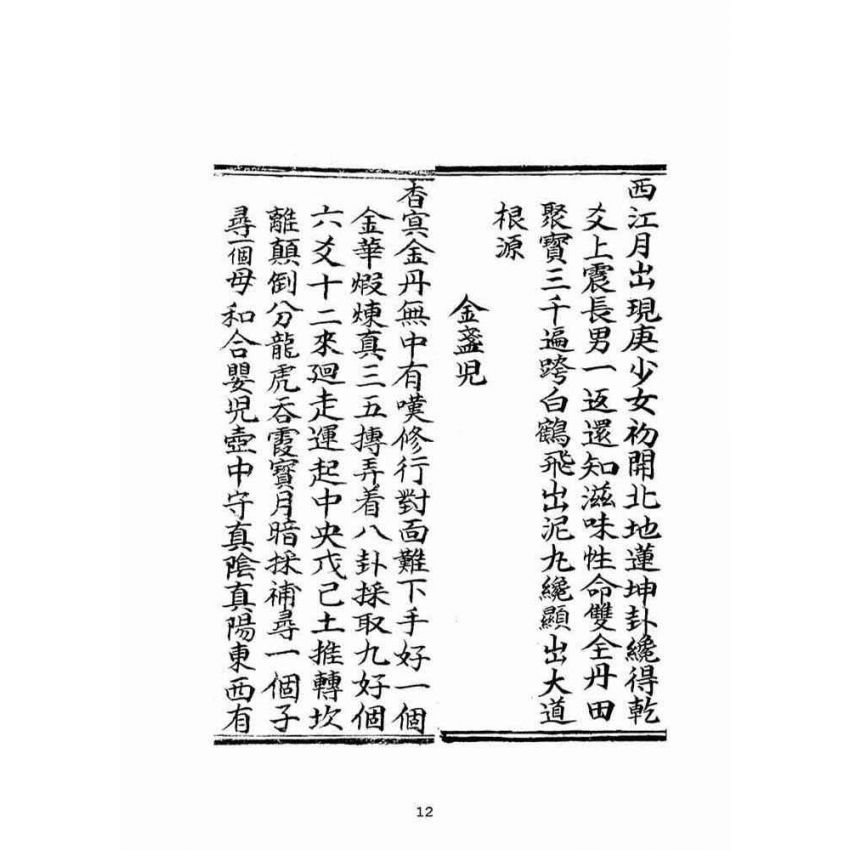 西江月出現庚少女初開北地蓮坤卦纔得乾
爻上震長男一返還知滋味性命雙全丹田
聚寶三千遍跨白鶴飛出泥九纔顯出大道
根源
金盞児
杳冥金丹無中有嘆修行對面難下手好一個
金華煆煉真三五摶弄着八卦採取九好個
六爻十二來廻走運起中央戊己土推轉坎
離顛倒分龍虎吞霞寶月暗採補尋一個子
尋一個母和合嬰児壺中守真陰真陽東西有
12